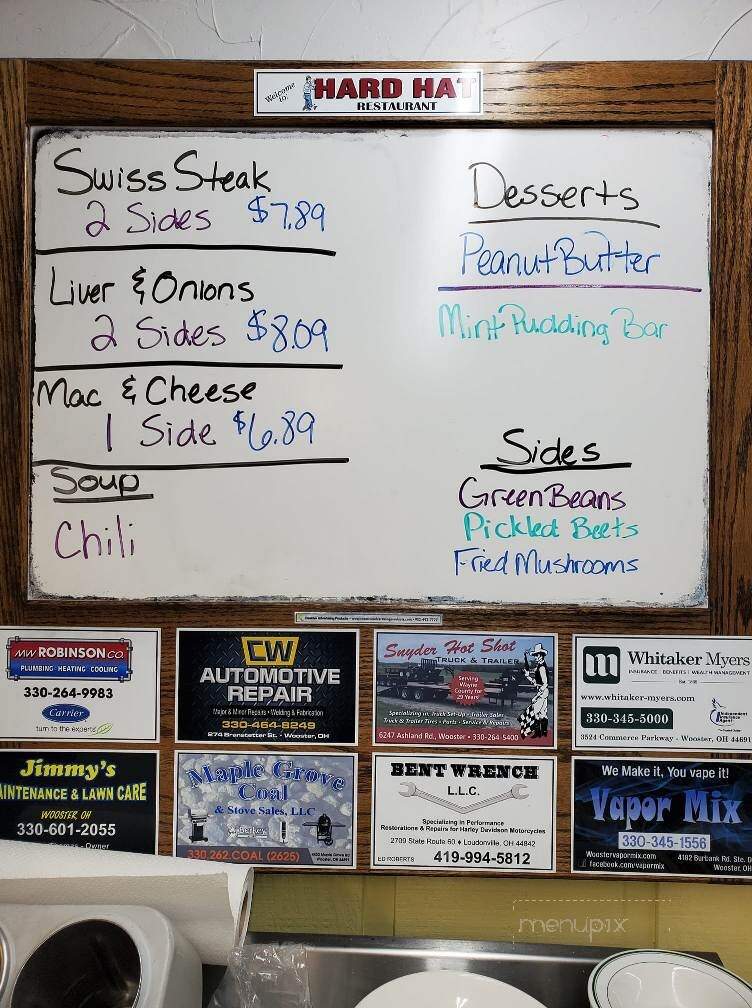 Welcome to:
HARD HAT
RESTAURANT
Swiss Steak
2 Sides $7.89
Liver & Onions
2 Sides $8.09
Mac & Cheese
1 Side $6.89
Soup
Chili
Desserts
Peanut Butter
Mint Pudding Bar
Sides
Green Beans
Pickled Beets
Fried Mushrooms
MW ROBINSON CO.
PLUMBING HEATING COOLING
330-264-9983
Carrier
turn to the experts
CW
AUTOMOTIVE
REPAIR
Major & Minor Repairs • Welding & Fabrication
330-464-8249
274 Branstetter St. • Wooster, OH
Snyder Hot Shot
TRUCK & TRAILER
Serving
Wayne
County for
29 Years
Specializing in: Truck Set-Up • Trailer Sales
Truck & Trailer Tires • Parts • Service & Repairs
6247 Ashland Rd., Wooster • 330-264-5400
Whitaker Myers
INSURANCE | BENEFITS | WEALTH MANAGEMENT
www.whitaker-myers.com
330-345-5000
3524 Commerce Parkway - Wooster, OH 44691
Jimmy's
AINTENANCE & LAWN CARE
WOOSTER, OH
330-601-2055
Owner
Maple Grove
Coal
& Stove Sales, LLC
330.262.COAL (2625)
BENT WRENCH
L.L.C.
Specializing in Performance
Restorations & Repairs for Harley Davidson Motorcycles
2709 State Route 60 ♦ Loudonville, OH 44842
ED ROBERTS 419-994-5812
We Make it, You vape it!
Vapor Mix
330-345-1556
Woostervapormix.com
facebook.com/vapormix
4182 Burbank Rd. Ste. D
Wooster, OH
menupix